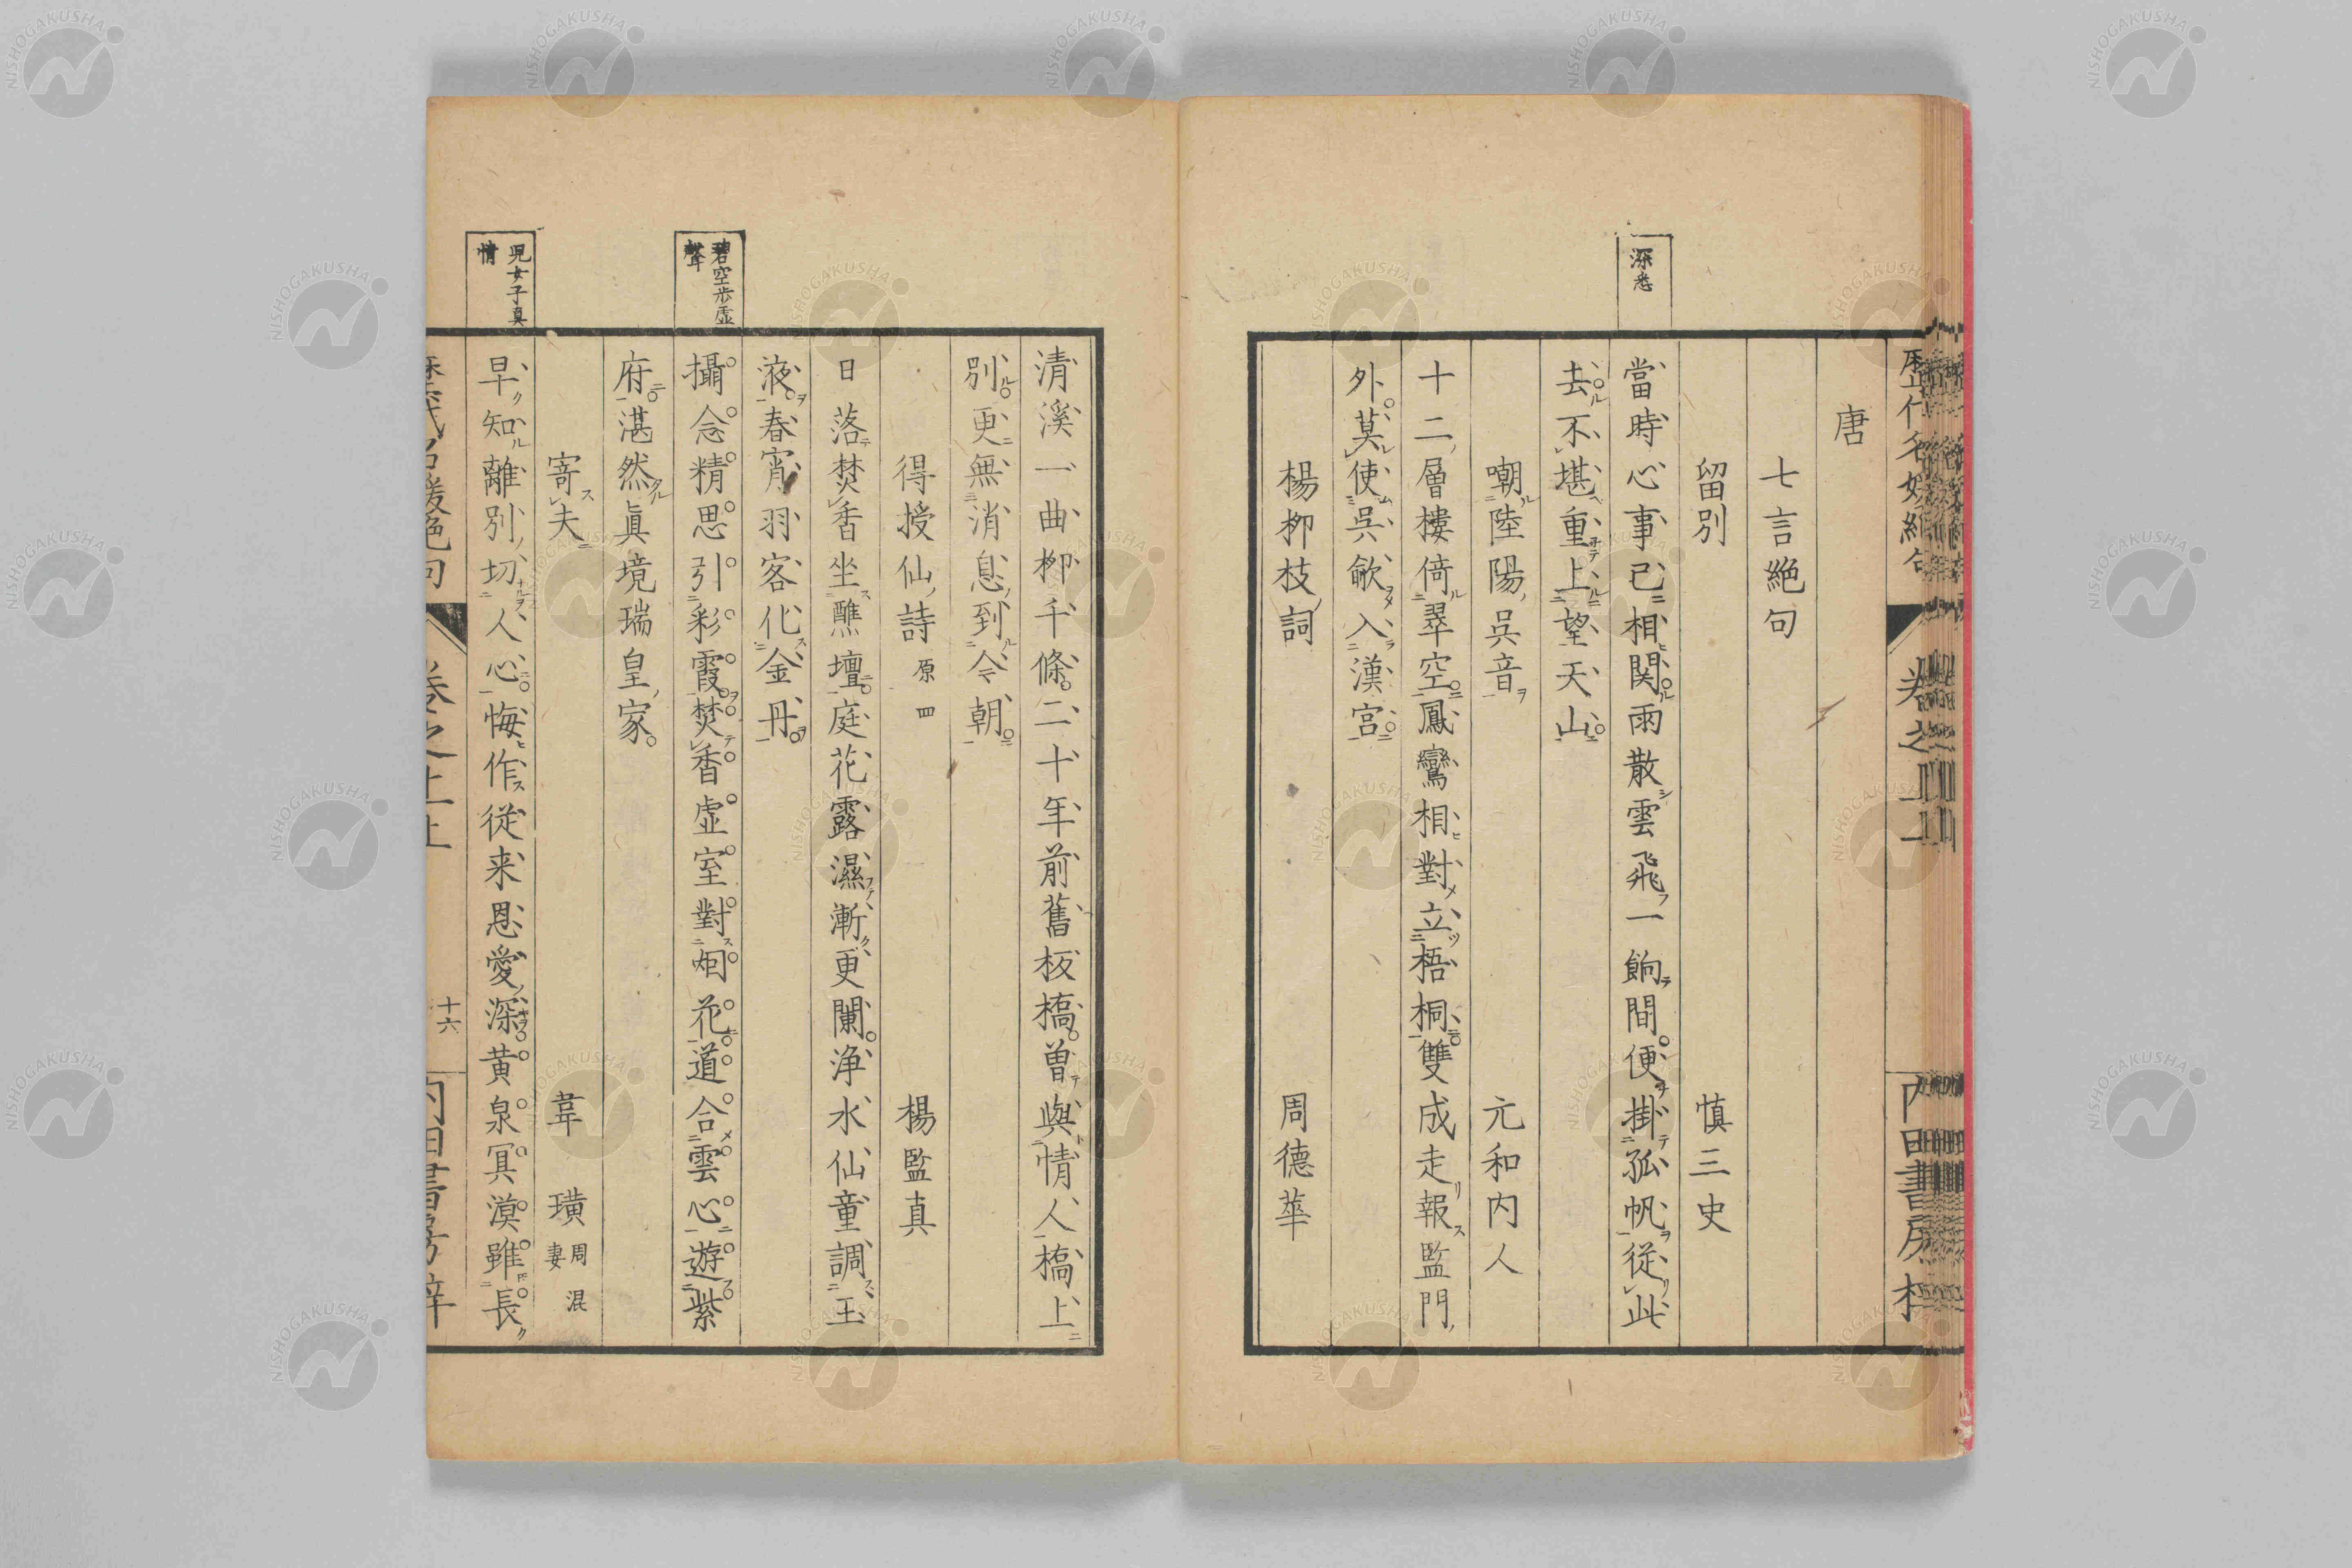 唐
七言絶句
留別
慎三史
深悉
當時心事已相関雨散雲飛一餉間便掛孤帆従此
去不堪重上望天山
嘲陸陽呉音
元和内人
十二層樓倚翠空鳳鸞相對立梧桐雙成走報監門
外莫使呉歈入漢宮
楊柳枝詞
周德華
清溪一曲柳千條二十年前舊板橋曽與情人橋上
別更無消息到今朝
得授仙詩 原四
楊監真
日落焚香坐醮壇庭花露濕漸更闌浄水仙童調玉
液春宵羽客化金丹
碧空歩虛聲
攝念精思引彩霞焚香虚室對烟花道合雲心遊紫
府湛然眞境瑞皇家
寄夫
韋璜 周混妻
児女子真情
早知離別切人心悔作従来恩愛深黄泉冥漠雖長
十六
内田書房梓
NISHOGAKUSHA